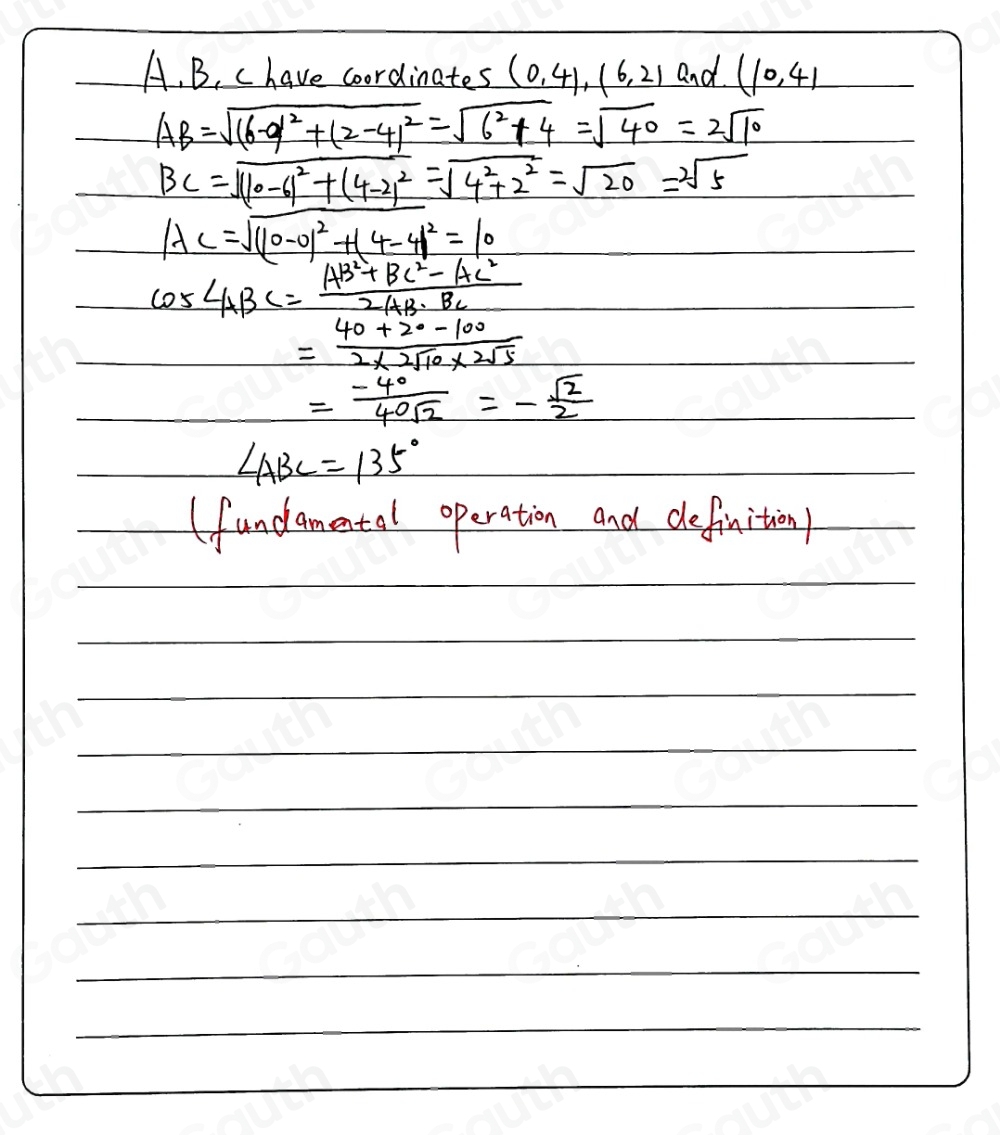 A, B, C have coordinates (0,4), (6,2) and (10,4)
AB = √((6-0)² + (2-4)²) = √(6² + 4) = √40 = 2√10
BC = √((10-6)² + (4-2)²) = √(4² + 2²) = √20 = 2√5
AC = √((10-0)² + (4-4)²) = 10
cos∠ABC = (AB² + BC² - AC²) / (2AB · BC)
= (40 + 20 - 100) / (2 × 2√10 × 2√5)
= -40 / (40√2) = -√2/2
∠ABC = 135°
(fundamental operation and definition)